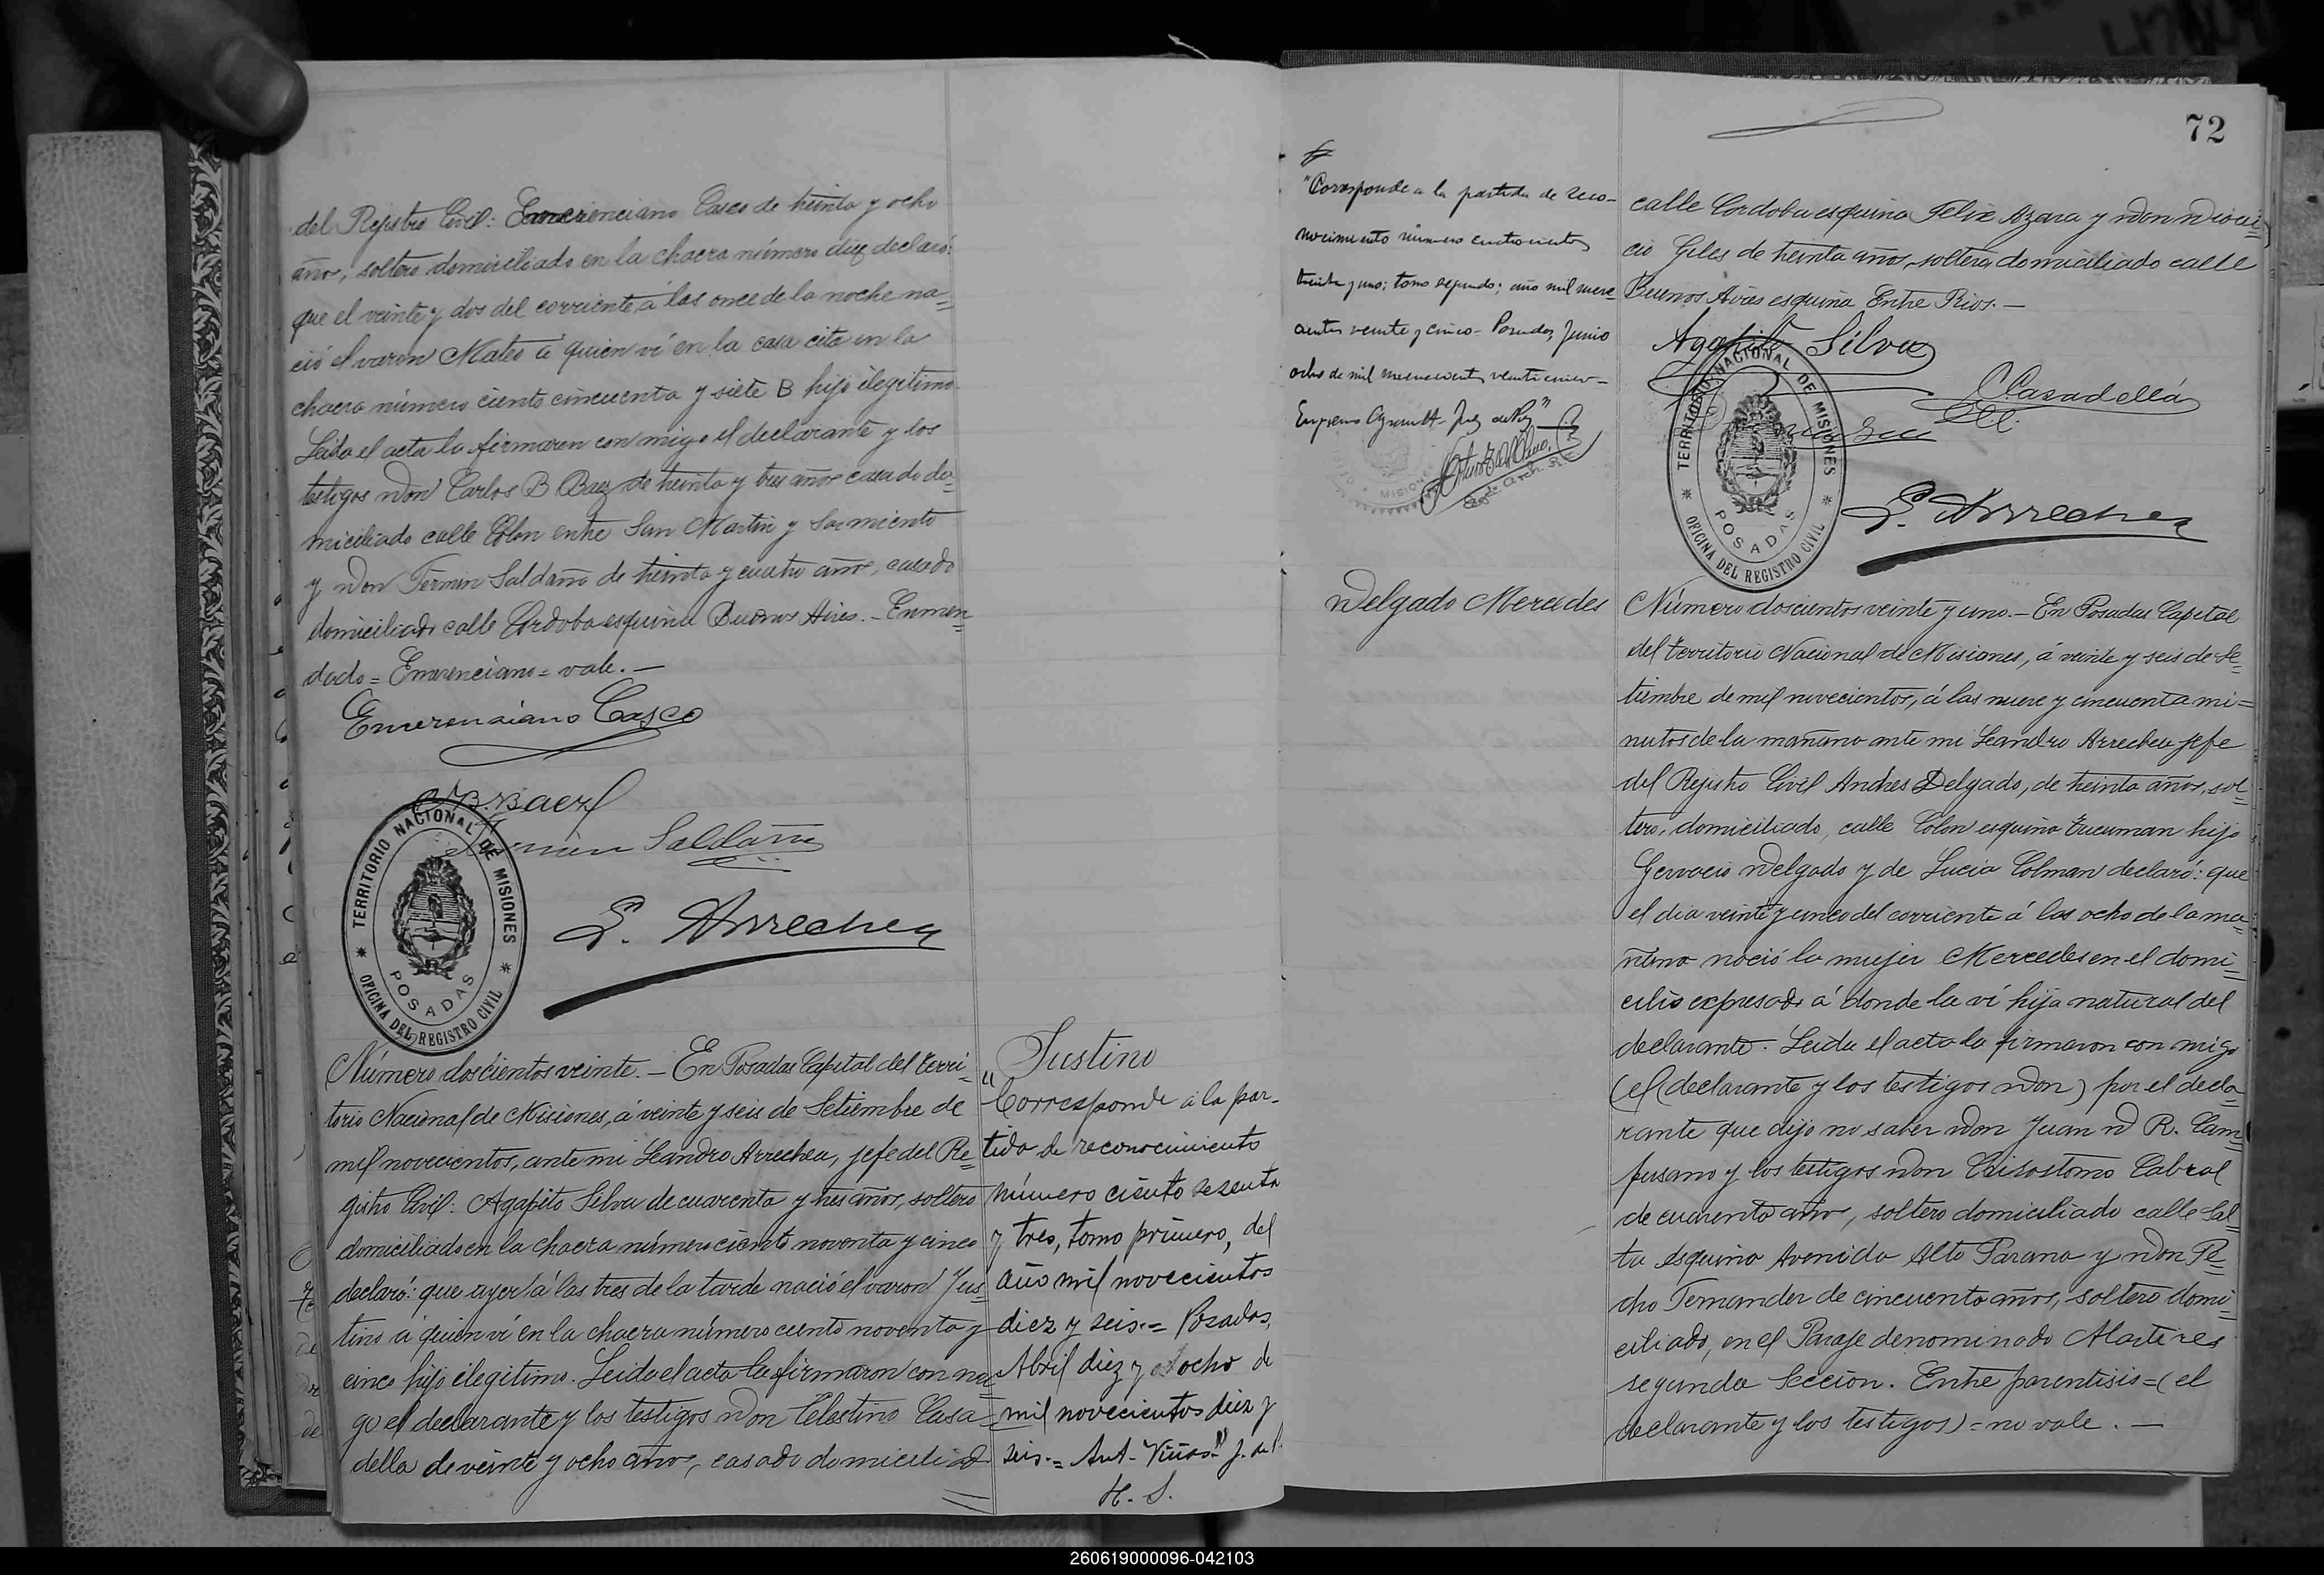 del Registro Civil: Emerenciano Casco de treinta y ocho
años, soltero domiciliado en la chacra número diez declaró:
que el veinte y dos del corriente á las once de la noche na=
ció el varon Mateo á quien ví en la casa cita en la
chacra número ciento cincuenta y siete B hijo ilegitimo.
Leida el acta la firmaron con migo el declarante y los
testigos Don Carlos B Baez de treinta y tres años casado do=
miciliado calle Colon entre San Martin y Sarmiento
y Don Fermin Saldaña de treinta y cuatro años, casado
domiciliado calle Cordoba esquina Buenos Aires. - Enmen=
dado = Emerenciano = vale. -
Emerensiano Casco
C B. Baez
Fermin Saldaña
TERRITORIO NACIONAL DE MISIONES
POSADAS
OFICINA DEL REGISTRO CIVIL
L. Arrechea
Número doscientos veinte. - En Posadas Capital del terri-
torio Nacional de Misiones, á veinte y seis de Setiembre de
mil novecientos, ante mi Leandro Arrechea, jefe del Re=
gistro Civil: Agapito Silva de cuarenta y tres años, soltero
domiciliado en la chacra número ciento noventa y cinco
declaró: que ayer á las tres de la tarde nació el varon Jus=
tino á quien ví en la chacra número ciento noventa y
cinco hijo ilegitimo. Leida el acta la firmaron con mi=
go el declarante y los testigos Don Celestino Casa=
della de veinte y ocho años, casado domiciliado
Justino
"Corresponde a la par-
tida de reconocimiento
número ciento sesenta
y tres, tomo primero, del
año mil novecientos
diez y seis.= Posadas,
Abril diez y ocho de
mil novecientos diez y
seis.= Ant. Viñas" J. de P.
H. S.
"Corresponde a la partida de reco-
nocimiento número cuatrocientos
treinta y uno; tomo segundo; año mil nove-
cientos veinte y cinco - Posadas, Junio
ocho de mil novecientos veinticinco -
Juez de Paz"
MISIONES
72
calle Cordoba esquina Felix Azara y Don Dioni=
cio Giles de treinta años, soltero, domiciliado calle
Buenos Aires esquina Entre Rios. -
Agapito Silva
C Casadellá
TERRITORIO NACIONAL DE MISIONES
POSADAS
OFICINA DEL REGISTRO CIVIL
L. Arrechea
Delgado Mercedes
Número doscientos veinte y uno. - En Posadas Capital
del territorio Nacional de Misiones, á veinte y seis de Se=
tiembre de mil novecientos, á las nueve y cincuenta mi=
nutos de la mañana ante mi Leandro Arrechea jefe
del Registro Civil Andres Delgado, de treinta años, sol=
tero, domiciliado, calle Colon esquina Tucuman hijo
Gervacio Delgado y de Lucia Colman declaró: que
el dia veinte y cinco del corriente á las ocho de la ma=
ñana nació la mujer Mercedes en el domi=
cilio expresado á donde la ví hija natural del
declarante. Leida el acta la firmaron con migo
(el (declarante y los testigos Don) por el decla=
rante que dijo no saber Don Juan D R. Cam=
pusano y los testigos Don Crisostomo Cabral
de cuarenta años, soltero domiciliado calle Sal=
ta esquina Avenida Alto Parana y Don Pe=
dro Fernandez de cincuenta años, soltero domi=
ciliado, en el Paraje denominado Martires
segunda Sección. Entre parentisis = (el
declarante y los testigos) = no vale. -
260619000096-042103